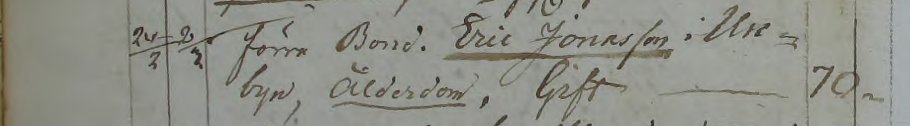 24/2 2/3 förra Bond. Eric Jonasson i Us=
byn, Ålderdom, Gift — 70.